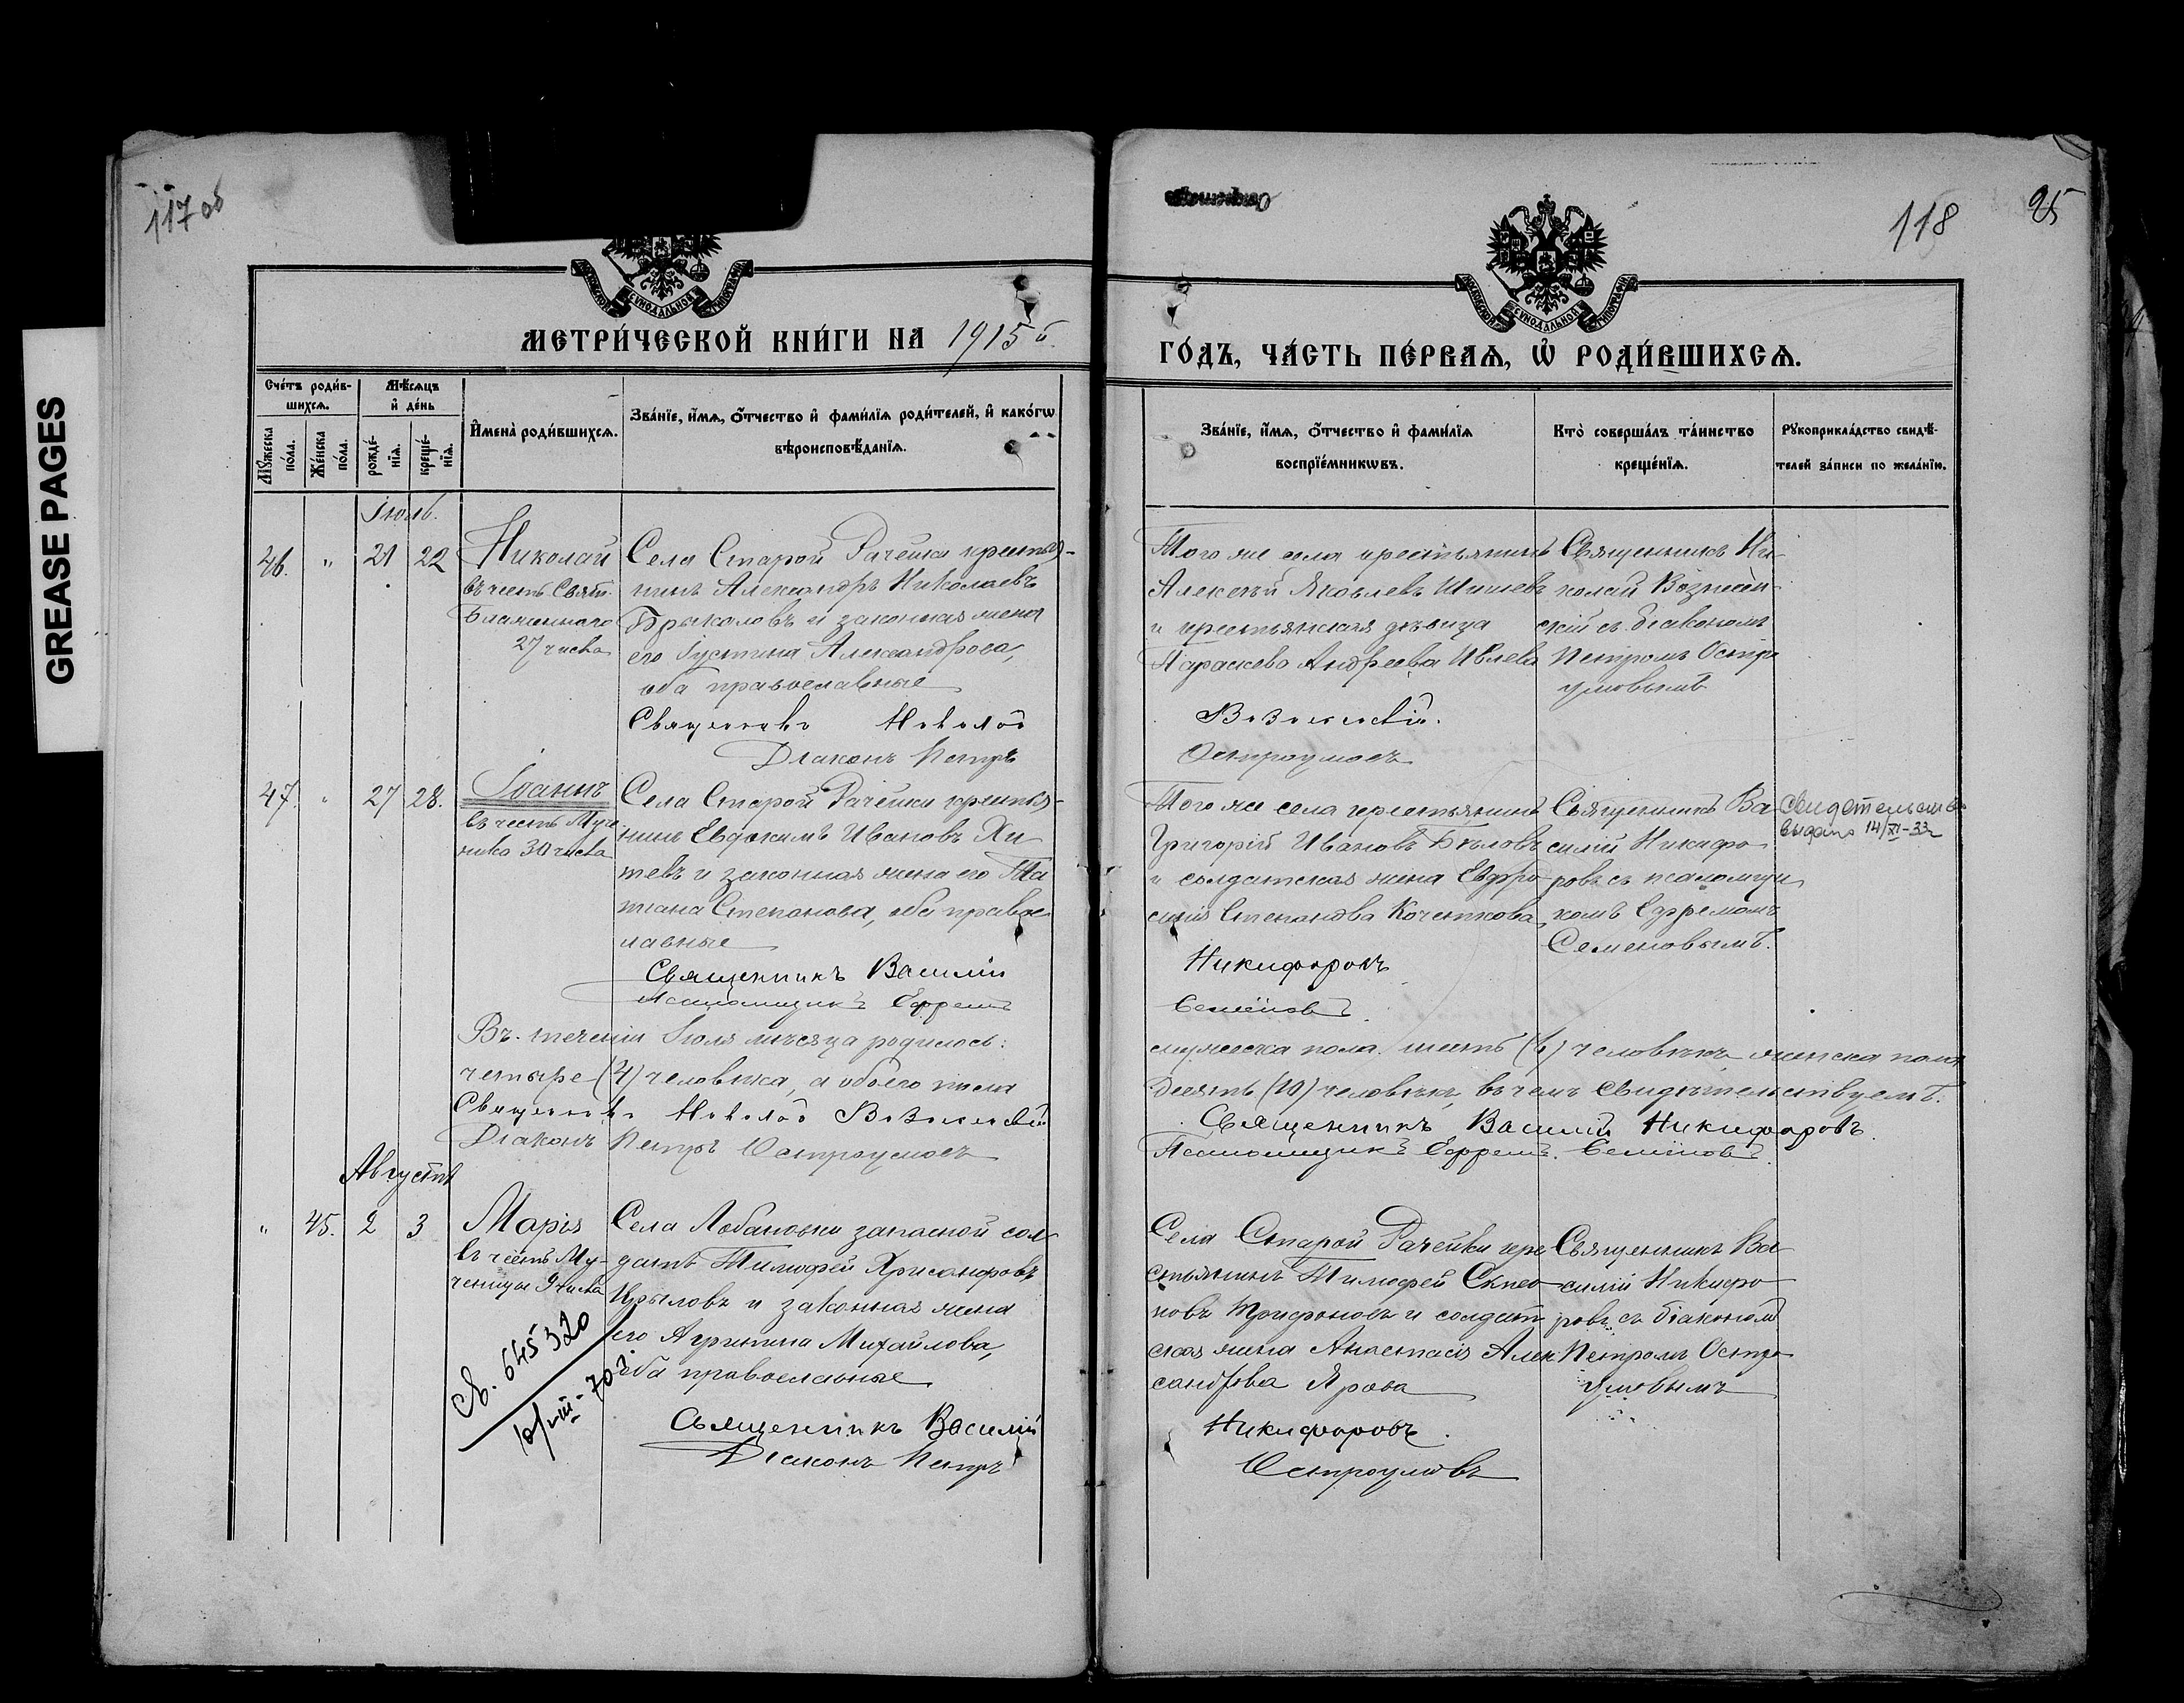 GREASE PAGES
117 об
118
95
МЕТРИ́ЧЕСКОЙ КНИ́ГИ НА 1915 г.
ГО́ДЪ, ЧА́СТЬ ПЕ́РВАѦ, Ѡ҆ РОДИ́ВШИХСѦ.
Сче́тъ роди́в-
шихсѧ.
Мѣ́сѧцъ
и҆ де́нь
Мꙋ́жеска
по́ла.
Же́нска
по́ла.
рожде́-
нїѧ.
креще́-
нїѧ.
И҆мена̀ роди́вшихсѧ.
Зва́нїе, и҆́мѧ, ѻ҆́тчество и҆ фами́лїѧ роди́телей, и҆ како́гѡ
вѣроисповѣ́данїѧ.
Зва́нїе, и҆́мѧ, ѻ҆́тчество и҆ фами́лїѧ
воспрїе́мникѡвъ.
Кто̀ соверша́лъ та́инство
креще́нїѧ.
Рꙋкоприкла́дство свидѣ́-
телей за́писи по жела́нїю.
Іюль.
46. " 21 22
Николай
въ честь Свят.
Блаженнаго
27 числа
Села Старой Рачейки крестья-
нинъ Александръ Николаевъ
Брыколовъ и законная жена
его Іустина Александрова,
оба православные
Священникъ Николай
Діаконъ Петръ
Того же села крестьянинъ
Алексѣй Яковлевъ Шишевъ
и крестьянская дѣвица
Параскева Андреева Ивлева
Вознесенскій.
Остроумовъ
Священникъ Ни-
колай Вознесен-
скій съ діакономъ
Петромъ Остро
умовымъ
47. " 27 28.
Іоаннъ
въ честь Муче
ника 30 числа
Села Старой Рачейки крестья-
нинъ Евдокимъ Ивановъ Хи
тевъ и законная жена его Та
тіана Степанова, оба правос
лавные
Священникъ Василій
Псаломщикъ Ефремъ
Того же села крестьянинъ
Григорій Ивановъ Бѣловъ
и солдатская жена Евфро
синія Степанова Кочеткова
Никифоровъ
Семеновъ
Священникъ Ва-
силій Никифо
ровъ съ псаломщи
комъ Ефремомъ
Семеновымъ.
Свидетельство
выдано 14/XI-33г
Въ теченіи Іюля мѣсяца родилось:
мужеска пола шесть (6) человѣкъ женска пола
четыре (4) человѣка, а обоего пола
десять (10) человѣкъ, въ чемъ свидѣтельствуемъ.
Священникъ Николай Вознесенскій
Священникъ Василій Никифоровъ.
Діаконъ Петръ Остроумовъ
Псаломщикъ Ефремъ Семеновъ.
Августъ
" 45. 2 3
Марія
въ честь Му-
ченицы 9 числа
Св. 645320
10/VIII-70г.
Села Лобановки запасной сол-
датъ Тимофей Хрисанфровъ
Крыловъ и законная жена
его Агрипина Михайлова,
оба православные
Священникъ Василій
Діаконъ Петръ
Села Старой Рачейки кре
стьянинъ Тимофей
новъ Трифоновъ и солдат
ская жена Анастасія Алек
сандрова Ярова
Никифоровъ.
Остроумовъ
Священникъ Ва
силій Никифо
ровъ съ діакономъ
Петромъ Остро
умовымъ